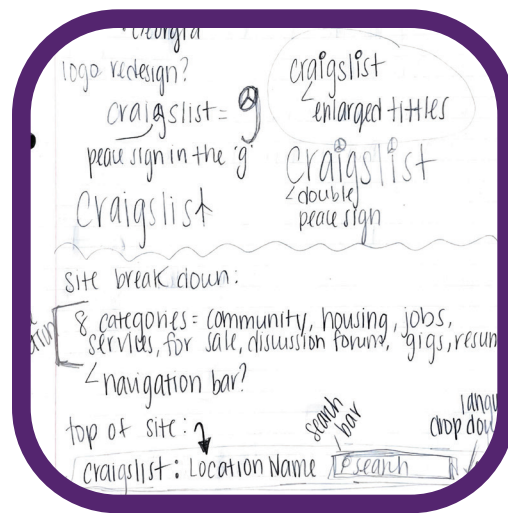 Georgia
logo redesign?
craigslist = g
peace sign in the 'g'
Craigslist
craigslist
enlarged tittles
Craigslist
double
peace sign
site break down:
8 categories = community, housing, jobs,
services, for sale, discussion forums, gigs, resum
navigation bar?
top of site:
search
bar
craigslist: Location Name
search